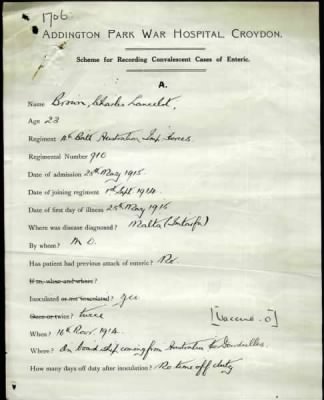 1706.
ADDINGTON PARK WAR HOSPITAL, CROYDON.
Scheme for Recording Convalescent Cases of Enteric.
A.
Name Brown, Charles Lancelot.
Age 23
Regiment 4th Batt Australian Imp Forces.
Regimental Number 910
Date of admission 28th May 1915
Date of joining regiment 1st Sept 1914.
Date of first day of illness 25th May 1915
Where was disease diagnosed? Malta
By whom? M O.
Has patient had previous attack of enteric? No.
If so, when and where?
Inoculated or not inoculated? yes
Once or twice? twice
[Vaccine - 0]
When? 16th Novr. 1914.
Where? On board ship coming from Australia to
How many days off duty after inoculation? No time off duty